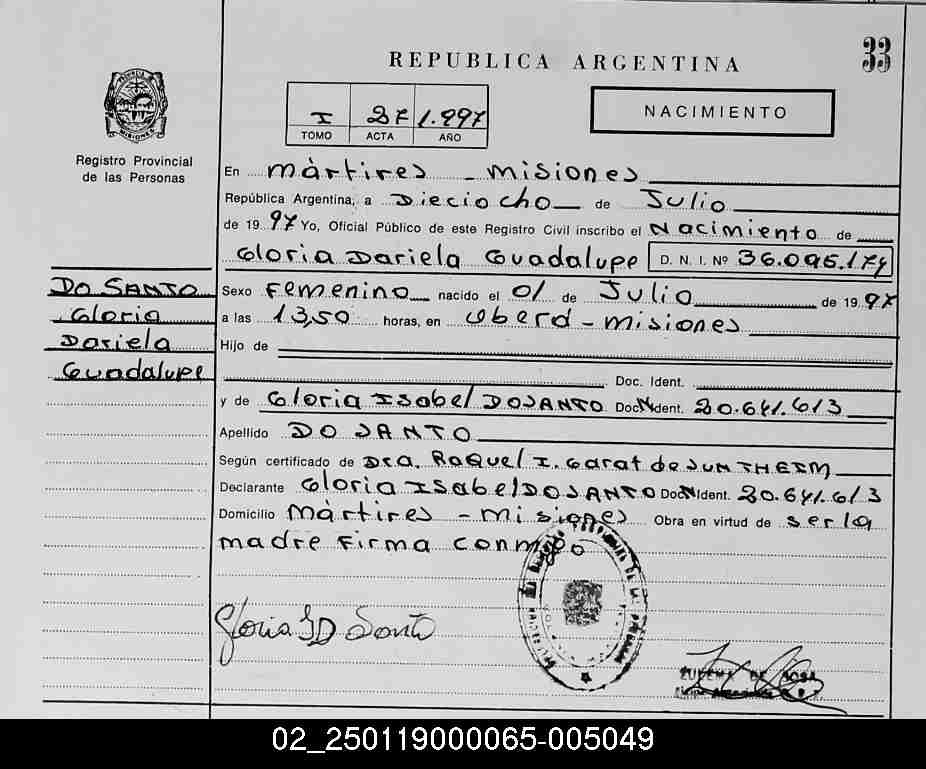 33
REPUBLICA ARGENTINA
I 27 1.997
TOMO ACTA AÑO
NACIMIENTO
Registro Provincial
de las Personas
En Màrtires - Misiones
República Argentina, a Dieciocho de Julio
de 1997 Yo, Oficial Público de este Registro Civil inscribo el Nacimiento de
Gloria Dariela Guadalupe D. N. I. Nº 36.095.174
DO SANTO
Gloria
Dariela
Guadalupe
Sexo Femenino nacido el 01 de Julio de 1997
a las 13,50 horas, en Oberá - Misiones
Hijo de
Doc. Ident.
y de Gloria Isabel DO SANTO Doc. Ident. 20.641.613
Apellido DO SANTO
Según certificado de Dra. Raquel I. Garat de
Declarante Gloria Isabel DO SANTO Doc. Ident. 20.641.613
Domicilio Màrtires - Misiones Obra en virtud de ser la
madre Firma conmigo
Gloria I D Santo
ZULEMA DE SOSA
02_250119000065-005049